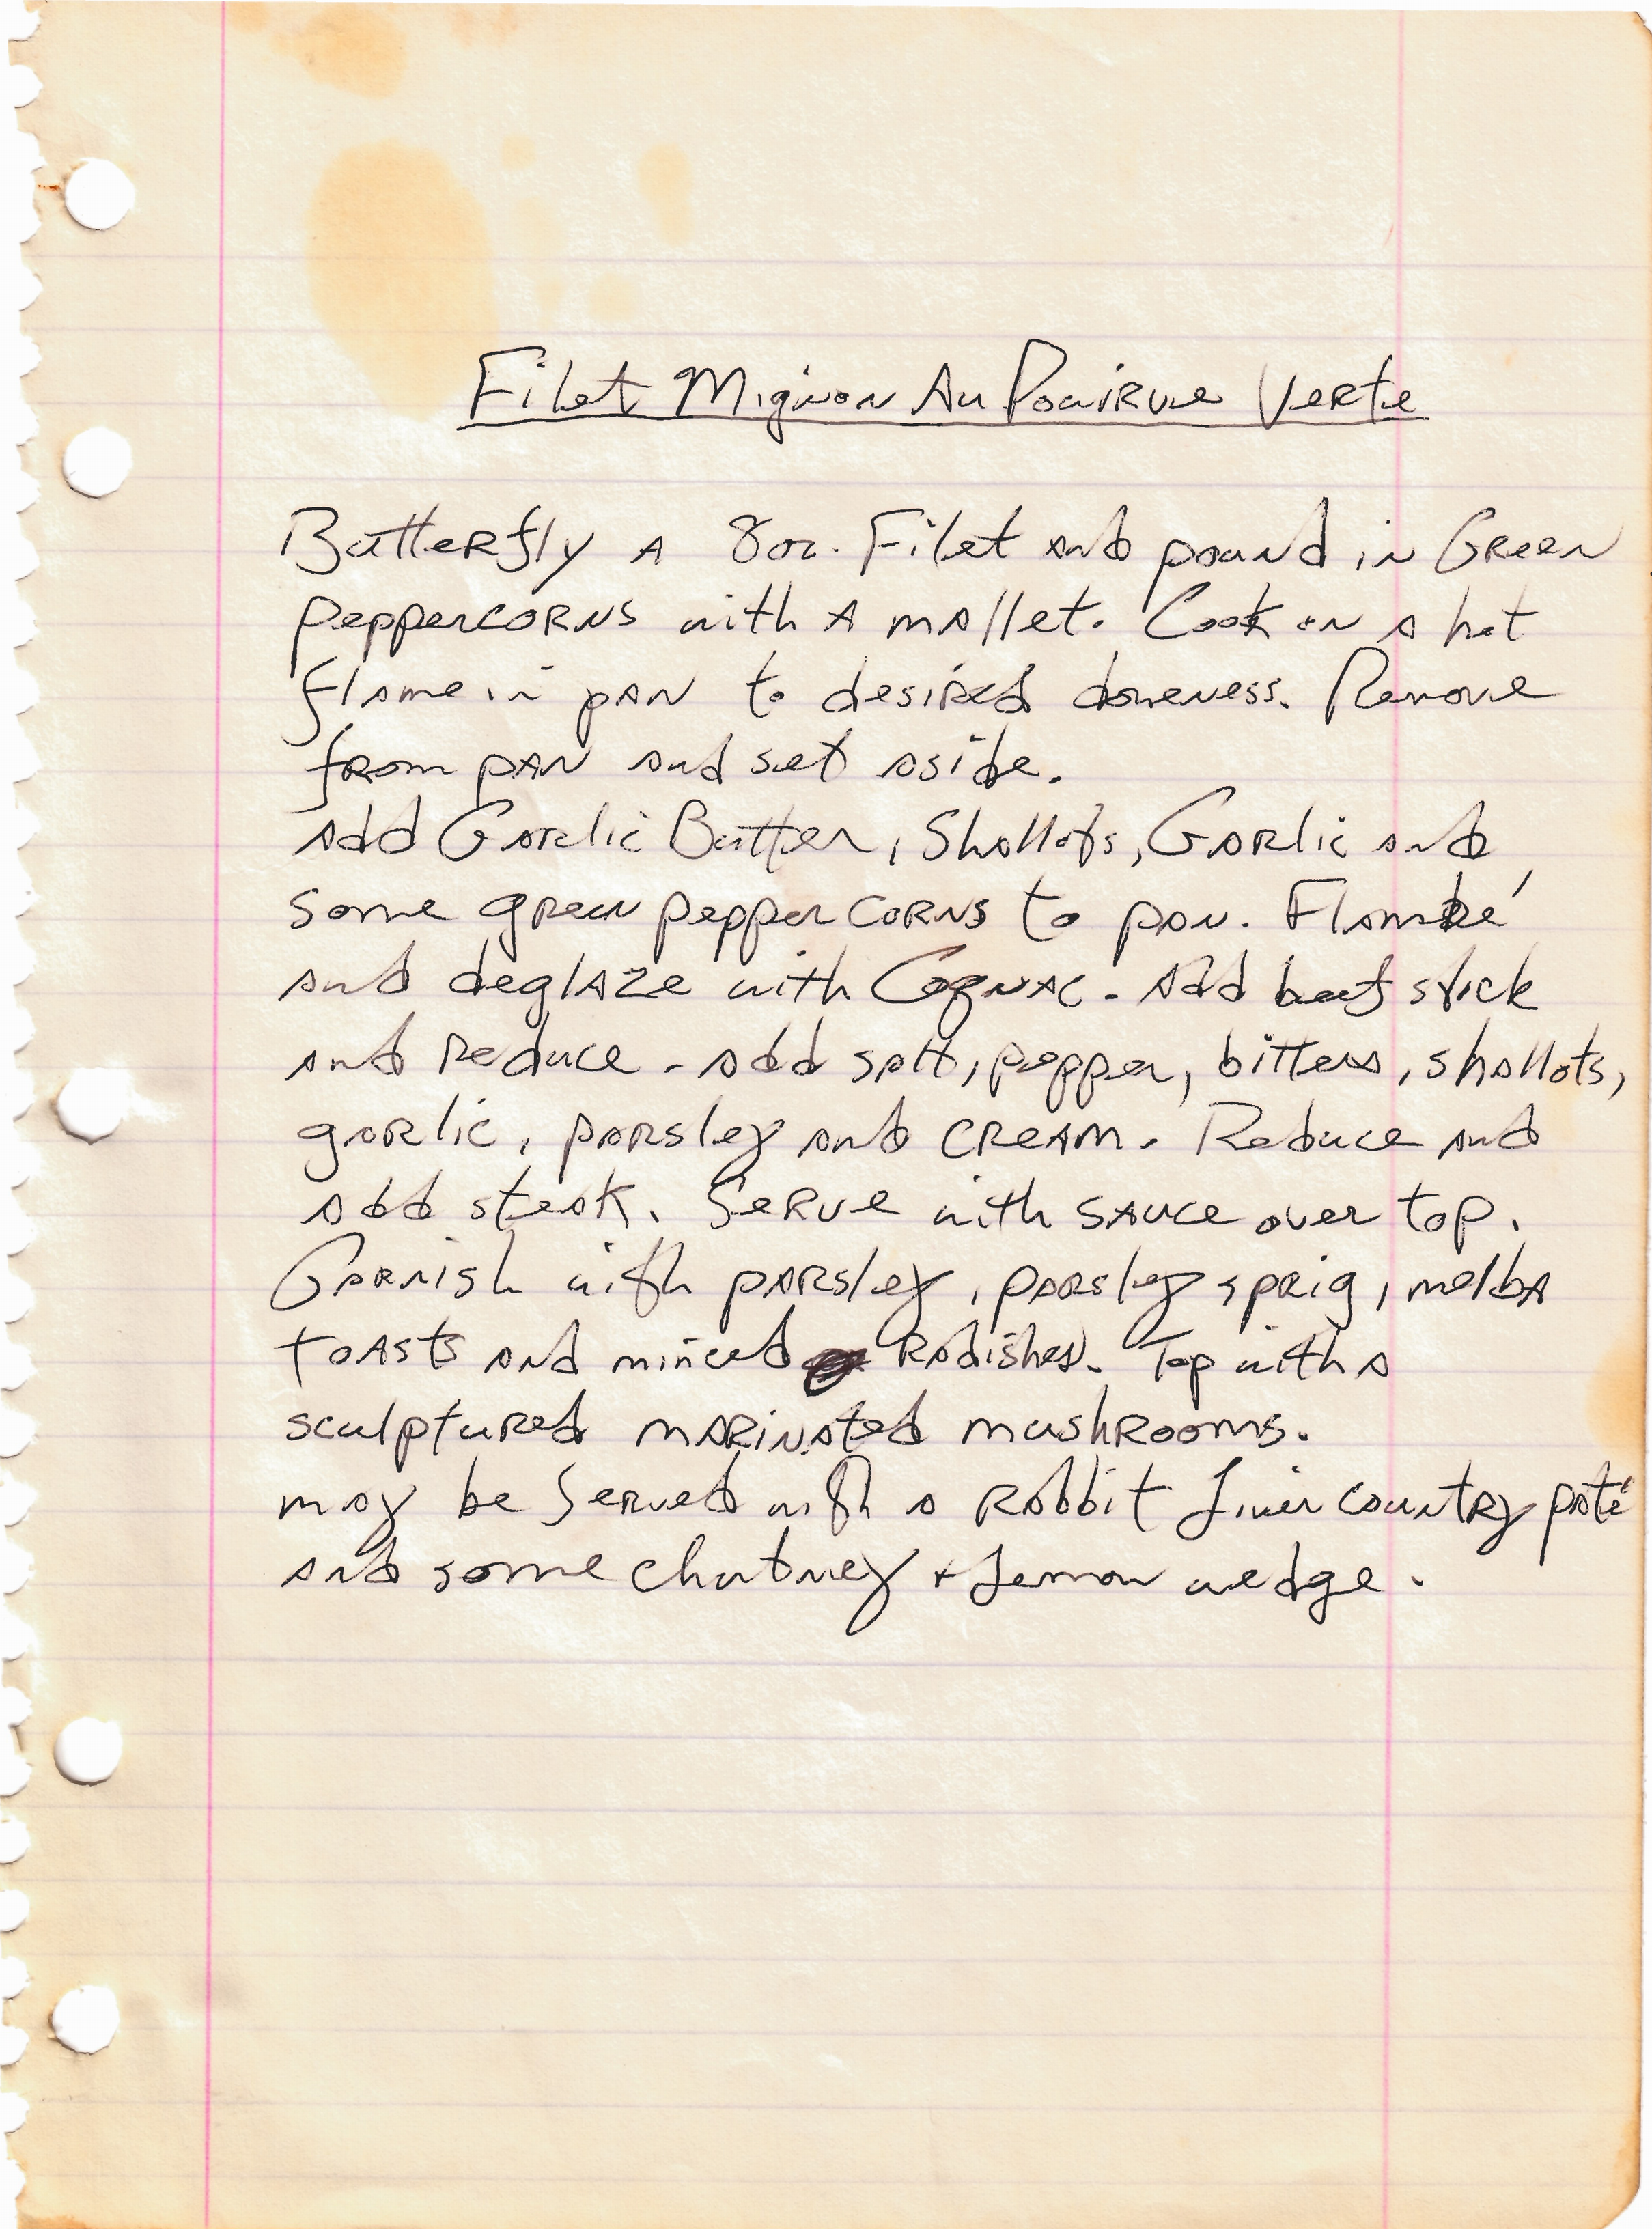 Filet Mignon Au Pouirvue Verte
Butterfly A 8oz. Filet and pound in Green
peppercorns with A mallet. Cook on a hot
flame in pan to desired doneness. Remove
from pan and set aside.
Add Garlic Butter, Shallots, Garlic and
some green peppercorns to pan. Flambé
and deglaze with Cognac. Add beef stick
and reduce. Add salt, pepper, bitters, shallots,
garlic, parsley and cream. Reduce and
add steak. Serve with sauce over top.
Garnish with parsley, parsley sprig, melba
toasts and minced Radishes. Top with a
sculptured marinated mushrooms.
may be served with a Rabbit Liver country paté
and some chutney + Lemon wedge.